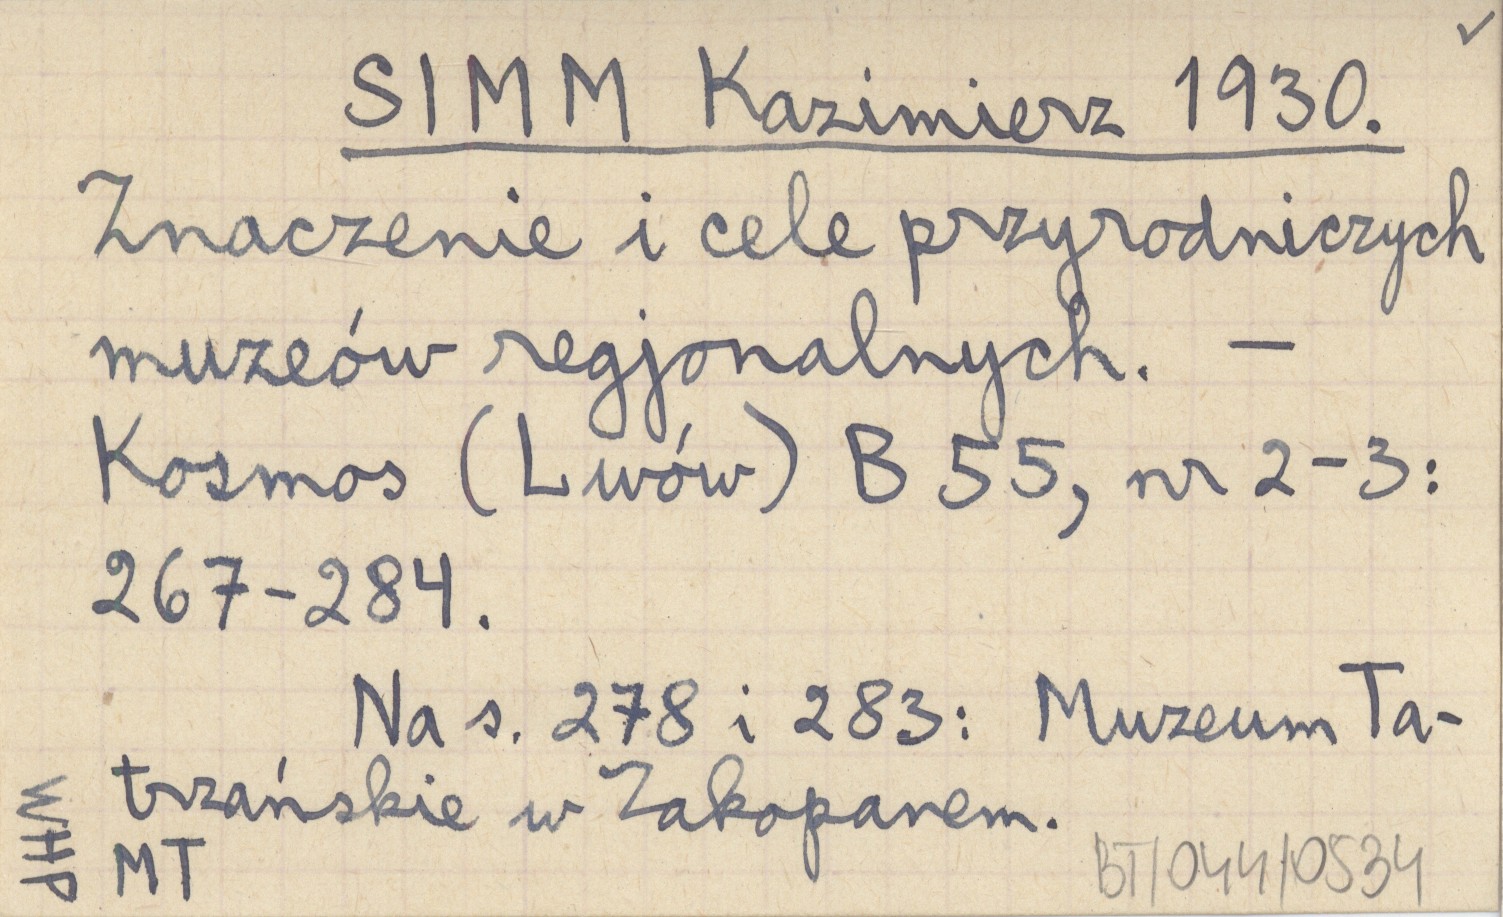 SIMM Kazimierz 1930.
Znaczenie i cele przyrodniczych
muzeów regjonalnych. —
Kosmos (Lwów) B 55, nr 2-3:
267-284.
Na s. 278 i 283: Muzeum Ta-
trzańskie w Zakopanem.
WHP
MT
BT/044/0534